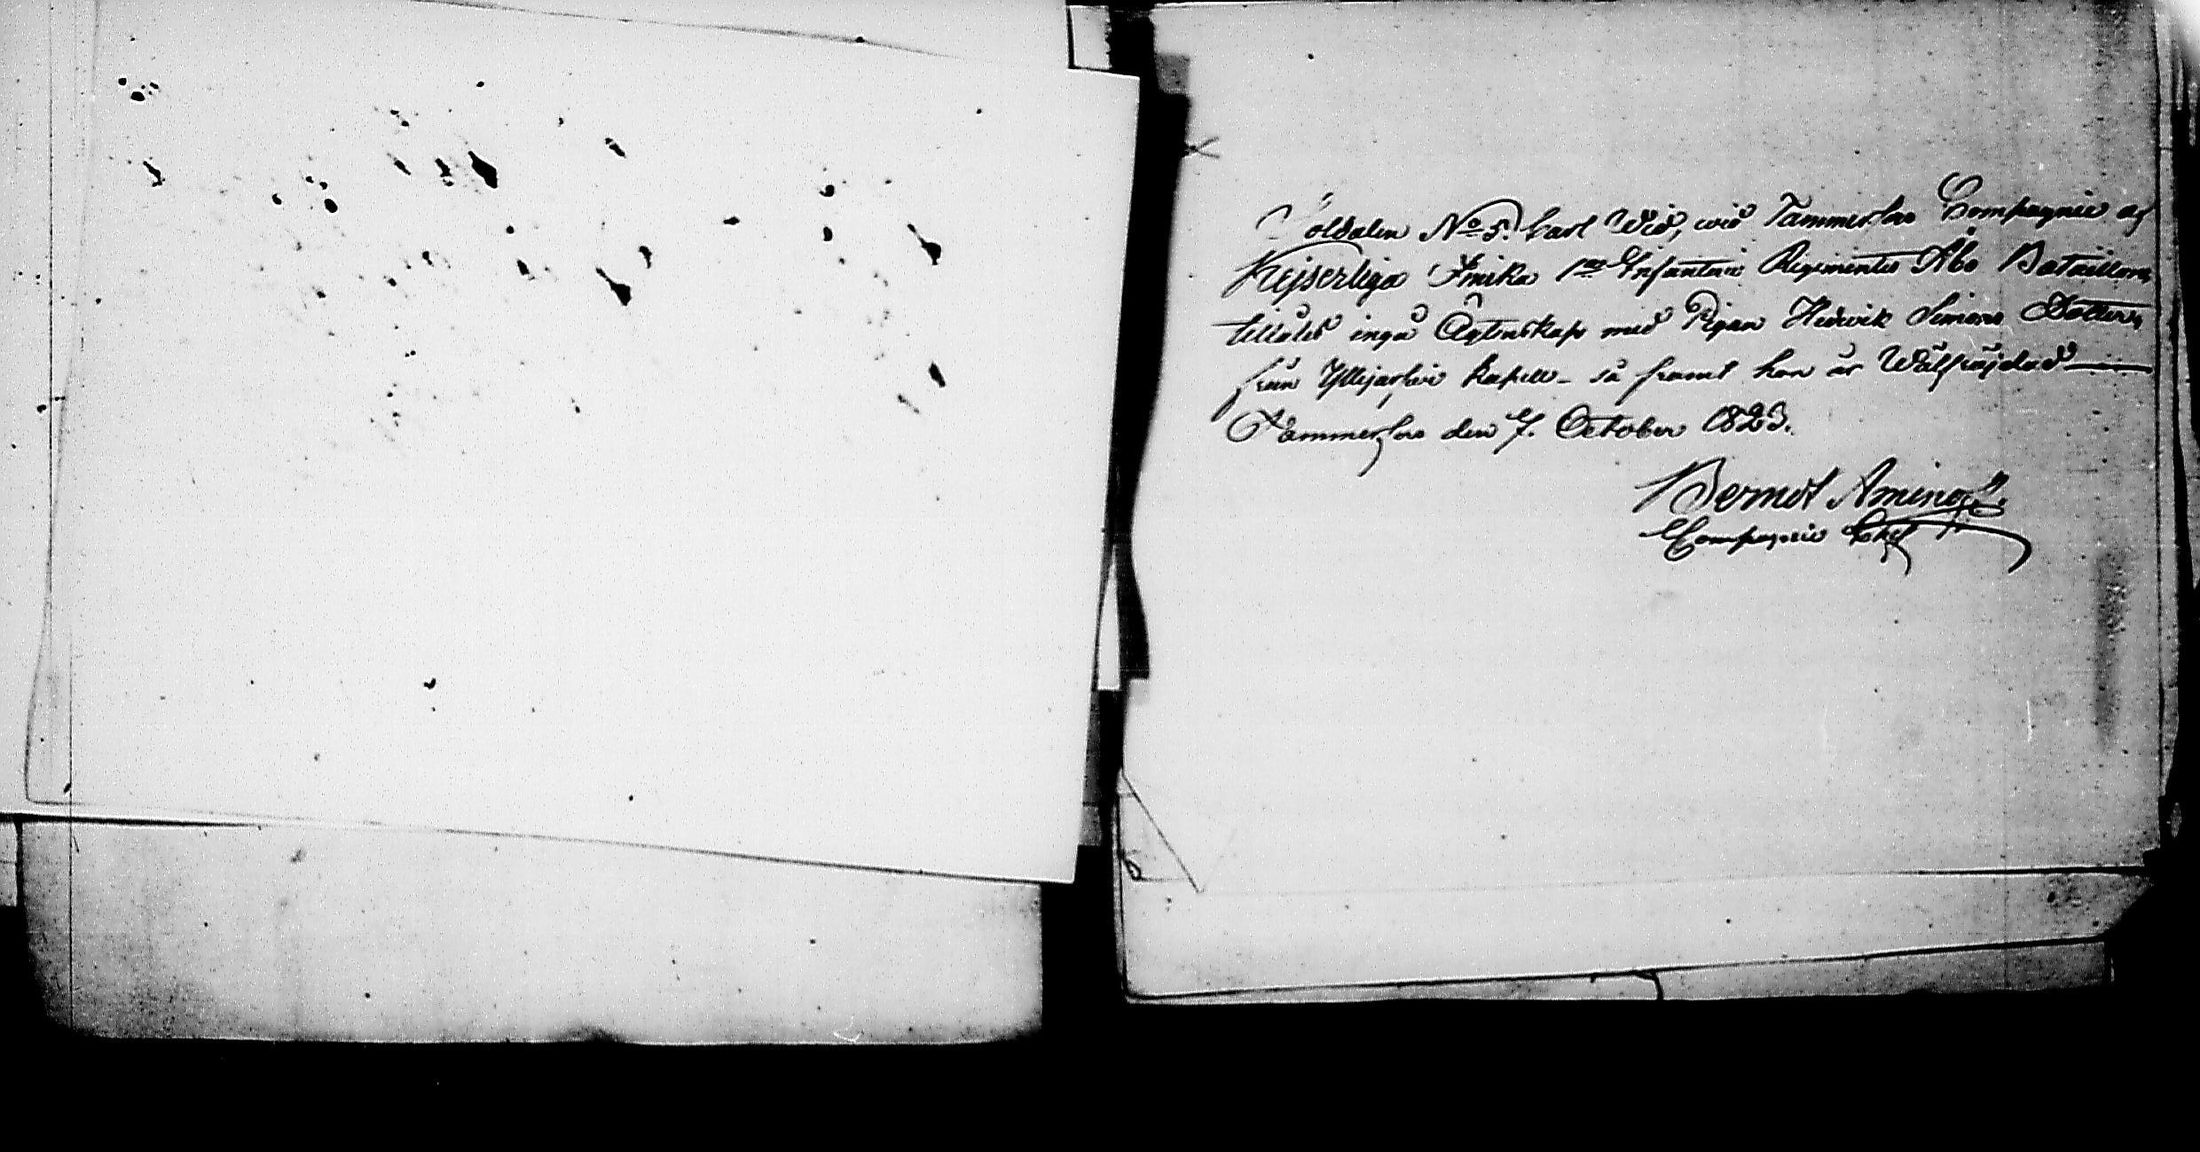 Soldaten No 5. Carl Wid, wid Tammerfors Compagnie af
Kejserliga Finska 1sta Infanteri Regimentes Åbo Bataillon,
tillåtes ingå Ägtenskap med Pigan Hedvik Simons Dotter,
från Yllejärfvi Kapell - så framt hon är Wälfräjdad
Tammerfors den 7. October 1823.
Berndt Aminoff
Compagnie Chef